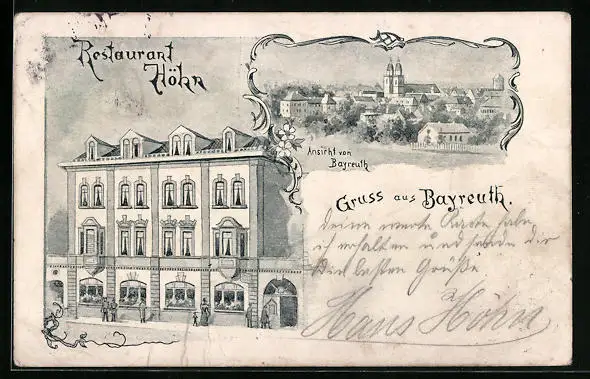 Restaurant
Höhn
Ansicht von
Bayreuth
Gruss aus Bayreuth.
Deine werte Karte habe
ich erhalten und sende dir
die besten Grüße
Hans Höhn